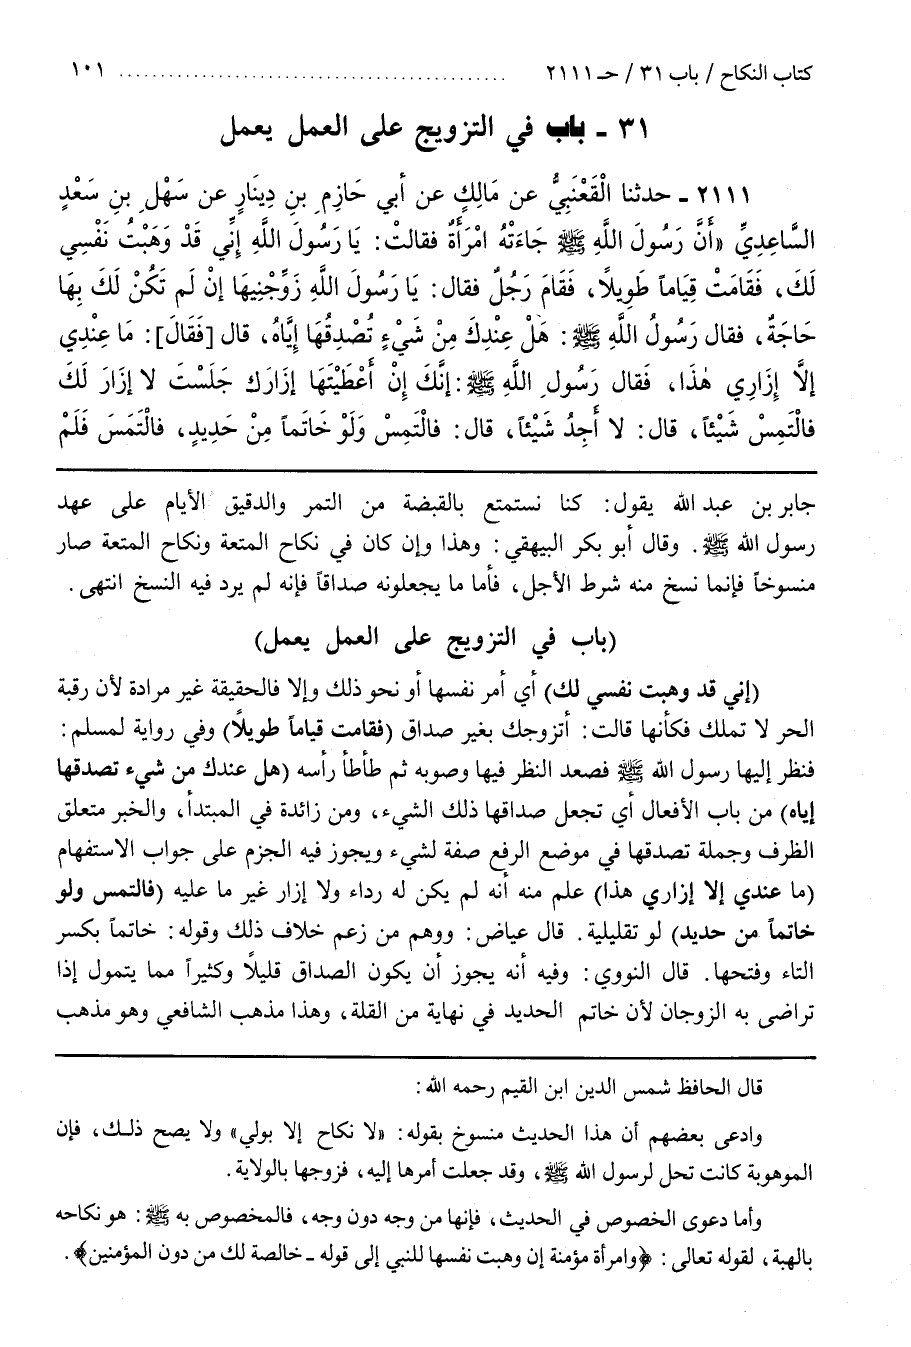 كتاب النكاح / باب ٣١ / حـ ٢١١١ ................................................ ١٠١
٣١ ـ باب في التزويج على العمل يعمل
٢١١١ ـ حدثنا الْقَعْنَبِيُّ عن مَالِكٍ عن أبي حَازِمِ بنِ دِينَارٍ عن سَهْلِ بنِ سَعْدٍ
السَّاعِدِيِّ «أنَّ رَسُولَ اللَّهِ ﷺ جَاءَتْهُ امْرَأَةٌ فقالتْ: يَا رَسُولَ اللَّهِ إنِّي قَدْ وَهَبْتُ نَفْسِي
لَكَ، فَقَامَتْ قِيَاماً طَوِيلاً، فَقَامَ رَجُلٌ فقال: يَا رَسُولَ اللَّهِ زَوِّجْنِيهَا إنْ لَم تَكُنْ لَكَ بِهَا
حَاجَةٌ، فقال رَسُولُ اللَّهِ ﷺ: هَلْ عِنْدِكَ مِنْ شَيْءٍ تُصْدِقُهَا إيَّاهُ، قال [فَقَالَ]: مَا عِنْدِي
إلَّا إزَارِي هٰذَا، فَقال رَسُولِ اللَّهِ ﷺ: إنَّكَ إنْ أَعْطَيْتَهَا إزَارَكَ جَلَسْتَ لا إزَارَ لَكَ
فالْتَمِسْ شَيْئاً، قال: لا أجِدُ شَيْئاً، قال: فالْتَمِسْ وَلَوْ خَاتَماً مِنْ حَدِيدٍ، فالْتَمَسَ فَلَمْ
جابر بن عبد الله يقول: كنا نستمتع بالقبضة من التمر والدقيق الأيام على عهد
رسول الله ﷺ. وقال أبو بكر البيهقي: وهذا وإن كان في نكاح المتعة ونكاح المتعة صار
منسوخاً فإنما نسخ منه شرط الأجل، فأما ما يجعلونه صداقاً فإنه لم يرد فيه النسخ انتهى.
(باب في التزويج على العمل يعمل)
(إني قد وهبت نفسي لك) أي أمر نفسها أو نحو ذلك وإلا فالحقيقة غير مرادة لأن رقبة
الحر لا تملك فكأنها قالت: أتزوجك بغير صداق (فقامت قياماً طويلاً) وفي رواية لمسلم:
فنظر إليها رسول الله ﷺ فصعد النظر فيها وصوبه ثم طأطأ رأسه (هل عندك من شيء تصدقها
إياه) من باب الأفعال أي تجعل صداقها ذلك الشيء، ومن زائدة في المبتدأ، والخبر متعلق
الظرف وجملة تصدقها في موضع الرفع صفة لشيء ويجوز فيه الجزم على جواب الاستفهام
(ما عندي إلا إزاري هذا) علم منه أنه لم يكن له رداء ولا إزار غير ما عليه (فالتمس ولو
خاتماً من حديد) لو تقليلية. قال عياض: ووهم من زعم خلاف ذلك وقوله: خاتماً بكسر
التاء وفتحها. قال النووي: وفيه أنه يجوز أن يكون الصداق قليلاً وكثيراً مما يتمول إذا
تراضى به الزوجان لأن خاتم الحديد في نهاية من القلة، وهذا مذهب الشافعي وهو مذهب
قال الحافظ شمس الدين ابن القيم رحمه الله:
وادعى بعضهم أن هذا الحديث منسوخ بقوله: «لا نكاح إلا بولي» ولا يصح ذلـك، فإن
الموهوبة كانت تحل لرسول الله ﷺ، وقد جعلت أمرها إليه، فزوجها بالولاية.
وأما دعوى الخصوص في الحديث، فإنها من وجه دون وجه، فالمخصوص به ﷺ: هو نكاحه
بالهبة، لقوله تعالى: ﴿وامرأة مؤمنة إن وهبت نفسها للنبي إلى قوله ـ خالصة لك من دون المؤمنين﴾.